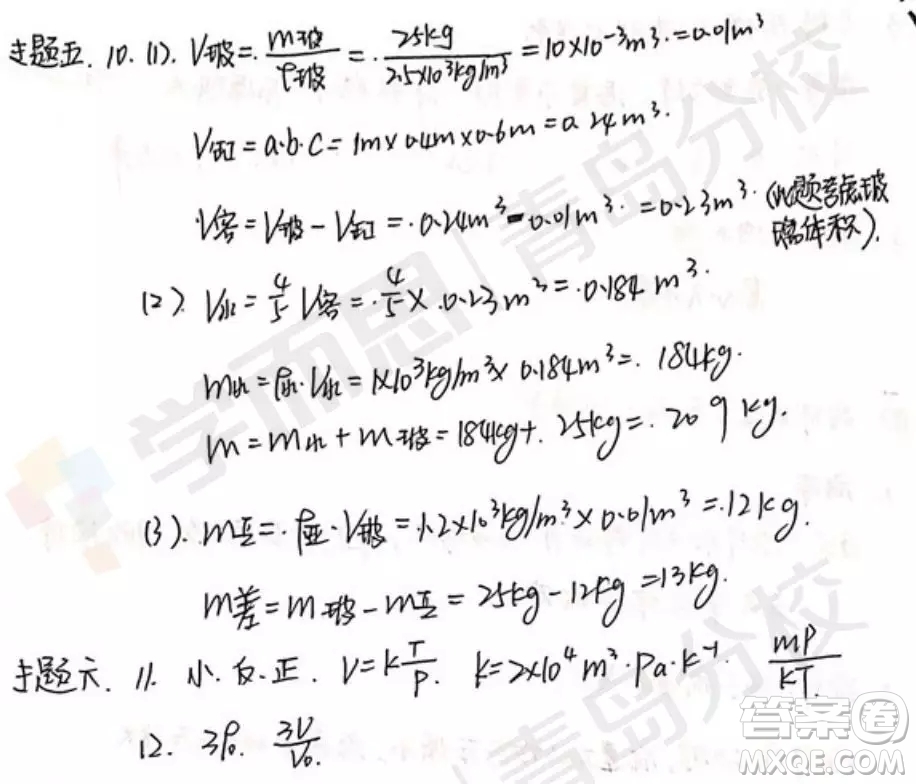 主题五. 10. (1). V玻 = m玻/ρ玻 = 25kg/2.5×10³kg/m³ = 10×10⁻³m³ = 0.01m³
V缸 = a·b·c = 1m×0.4m×0.6m = 0.24m³.
V容 = V玻 - V缸 = 0.24m³ - 0.01m³ = 0.23m³. (此题考虑玻
璃体积).
(2). V水 = 4/5 V容 = 4/5 × 0.23m³ = 0.184m³.
m水 = ρ水·V水 = 1×10³kg/m³×0.184m³ = 184kg.
m = m水 + m玻 = 184kg + 25kg = 209kg.
(3). m亚 = ρ亚·V玻 = 1.2×10³kg/m³×0.01m³ = 12kg.
m差 = m玻 - m亚 = 25kg - 12kg = 13kg.
主题六. 11. 小. 反. 正. V = k T/P. k = 2×10⁴ m³·Pa·k⁻¹. mP/kT.
12. 3ρ₀. 3V/V₀.
学而思 青岛分校
青岛分校
答案圈
MXQE.COM